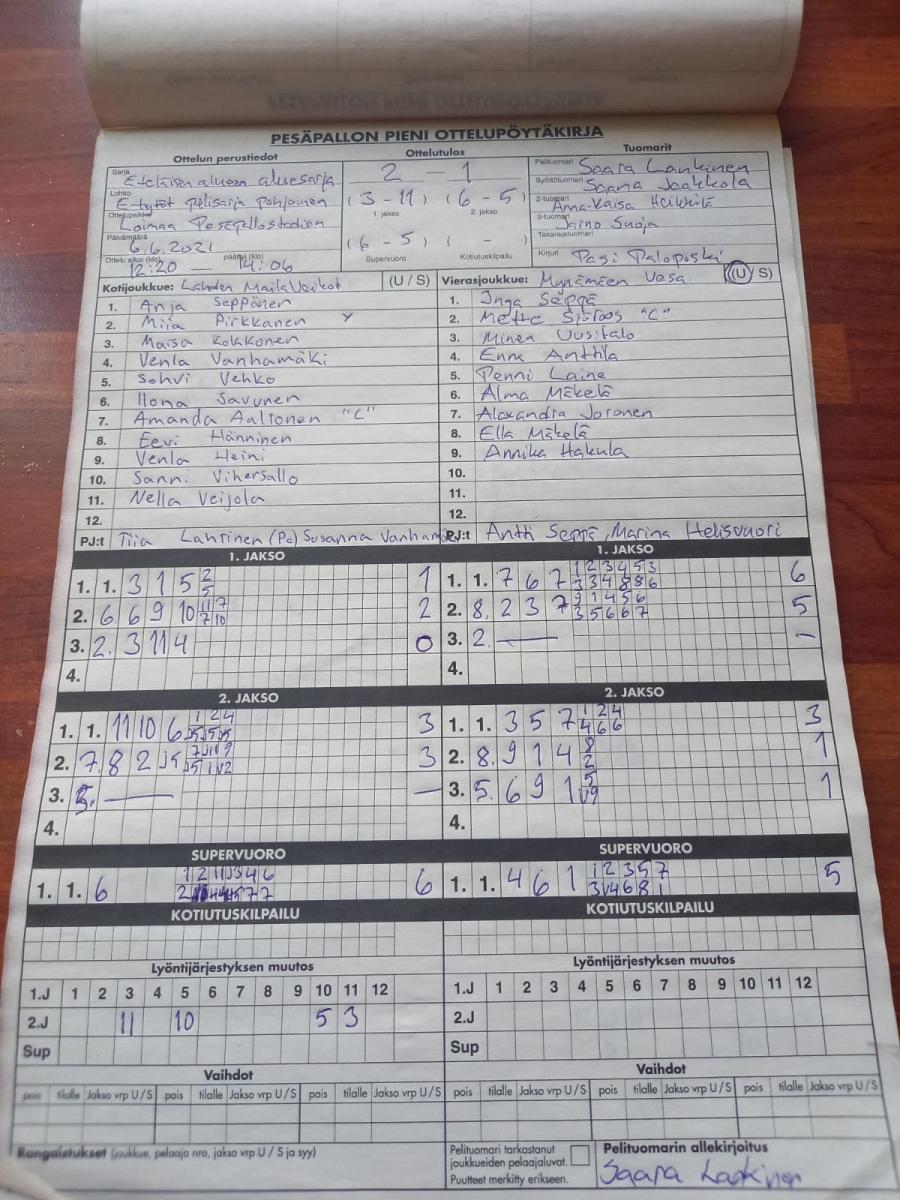 PESÄPALLON PIENI OTTELUPÖYTÄKIRJA
Ottelun perustiedot
Sarja
Eteläisen alueen aluesarja
Lohko
E-tytöt pelisarja pohjoinen
Ottelupaikka
Loimaa Pesäpallostadion
Päivämäärä
6.6.2021
Ottelu alkoi (klo) päättyi (klo)
12:20 — 14:06
Ottelutulos
2 - 1
(3-11) (6-5)
1. jakso 2. jakso
(6-5) ( - )
Supervuoro Kotiutuskilpailu
Tuomarit
Pelituomari Saara Lankinen
Syöttötuomari Saana Jaakkola
2-tuomari Anna-Kaisa Heikkilä
3-tuomari Jaino Suoja
Takarajatuomari
Kirjuri Pasi Paloposki
Kotijoukkue: Lahden MailaVeikot (U / S)
1. Anja Seppänen
2. Miia Pirkkanen Y
3. Maisa Kokkonen
4. Venla Vanhamäki
5. Sohvi Vehko
6. Ilona Savunen
7. Amanda Aaltonen "C"
8. Eevi Hänninen
9. Venla Heini
10. Sanni Vihersallo
11. Nella Veijola
12.
PJ:t Tiia Lahtinen (Po) Susanna Vanhamäki
Vierasjoukkue: Mynämäen Vesa (U / S)
1. Inga Seppä
2. Mette Sjöroos "C"
3. Minea Uusitalo
4. Enna Anttila
5. Penni Laine
6. Alma Mäkelä
7. Alexandra Joronen
8. Ella Mäkelä
9. Annika Hakula
10.
11.
12.
PJ:t Antti Seppä, Marina Helisvuori
1. JAKSO
1. 1. 3 1 5 2 5 1
2. 6 6 9 10 11 7 7 10 2
3. 2. 3 11 4 0
4.
1. JAKSO
1. 1. 7 6 7 1 2 3 4 5 3 3 3 4 8 8 6 6
2. 8. 2 3 7 9 1 4 5 6 3 5 6 6 7 5
3. 2. — -
4.
2. JAKSO
1. 1. 11 10 6 1 2 4 3
2. 7. 8 2 3
3. 5. — —
4.
2. JAKSO
1. 1. 3 5 7 1 2 4 4 6 6 3
2. 8. 9 1 4 8 2 1
3. 5. 6 9 1 5 1
4.
SUPERVUORO
1. 1. 6 6
SUPERVUORO
1. 1. 4 6 1 1 2 3 5 7 5
KOTIUTUSKILPAILU
KOTIUTUSKILPAILU
Lyöntijärjestyksen muutos
1.J 1 2 3 4 5 6 7 8 9 10 11 12
2.J 11 10 5 3
Sup
Lyöntijärjestyksen muutos
1.J 1 2 3 4 5 6 7 8 9 10 11 12
2.J
Sup
Vaihdot
pois tilalle Jakso vrp U / S pois tilalle Jakso vrp U / S pois tilalle Jakso vrp U / S
Vaihdot
pois tilalle Jakso vrp U / S pois tilalle Jakso vrp U / S pois tilalle Jakso vrp U / S
Rangaistukset (joukkue, pelaaja nro, jakso vrp U / S ja syy)
Pelituomari tarkastanut
joukkueiden pelaajaluvat.
Puutteet merkitty erikseen.
Pelituomarin allekirjoitus
Saara Lankinen